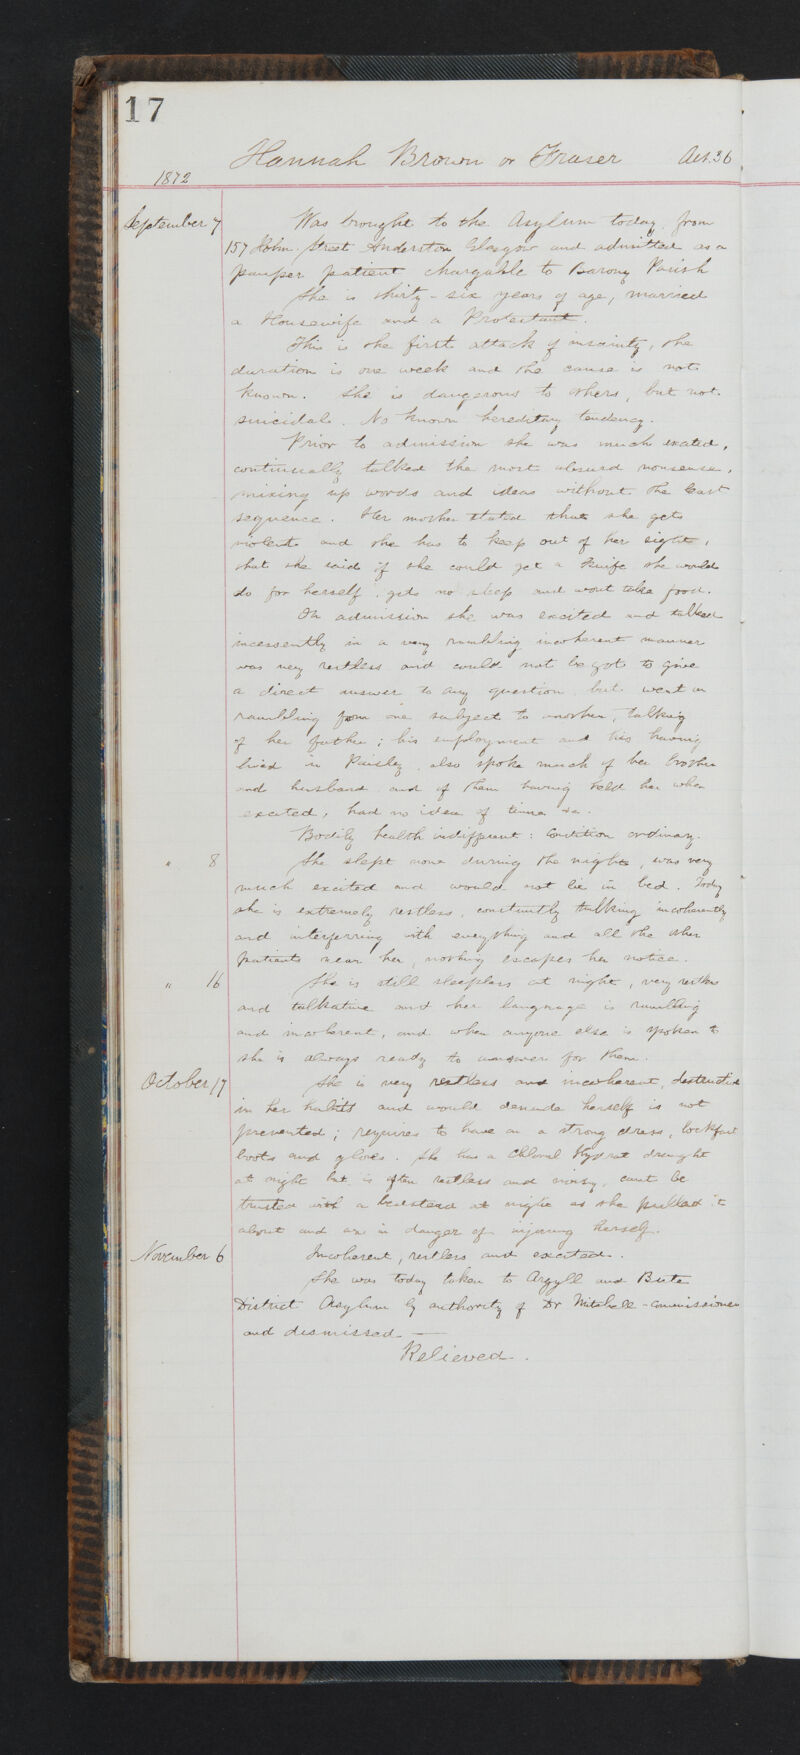 17
Hannah Brown or Fraser Aet. 36
1872
September 7 Was brought to the Asylum today from
157 John Street Anderston Glasgow and admitted as a
pauper patient chargable to Barony Parish
She is thirty-six years of age, married
a Housewife and a Protestant.
This is the first attack of insanity, the
duration is one week and the cause is not
known. She is dangerous to others, but not
suicidal. No known hereditary tendency.
Prior to admission she was much excited,
continually talked the most absurd nonsense,
mixing up words and ideas without the least
sequence. Her mother stated that she gets
violent and she has to keep out of her sight,
that she said if she could get a knife she would
do for herself, gets no sleep and wont take food.
On admission she was excited and talked
incessently in a very rambling incoherent manner
was very restless and could not be got to give
a direct answer to any question but went on
rambling from one subject to another, talking
of her father; his employment and his having
lived in Paisley, also spoke much of her brother
and husband and of them having held her when
excited, had no idea of time &c.
Bodily health indifferent: Condition ordinary.
" 8 She slept none during the night, was very
much excited and would not lie in bed. Today
she is extremely restless, constantly talking incoherently
and interferring with everything and all the other
patients near her, nothing escapes her notice.
" 16 She is still sleepless at night, very restless
and talkative and her language is rambling
and incoherent, and when anyone else is spoken to
she is always ready to answer for them.
October 17 She is very restless and incoherent, destructive
in her habits and would denude herself is not
prevented; requires to have on a strong dress, lockfast
boots and gloves. She has a Chloral Hydrat draught
at night but is often restless and noisy, cant be
trusted with a bedstead at night as she pulled it
about and was in danger of injuring herself.
November 6 Incoherent, restless and excited.
She was today taken to Argyll and Bute
District Asylum by authority of Dr Mitchell - Commissioner
and dismissed —
Relieved.